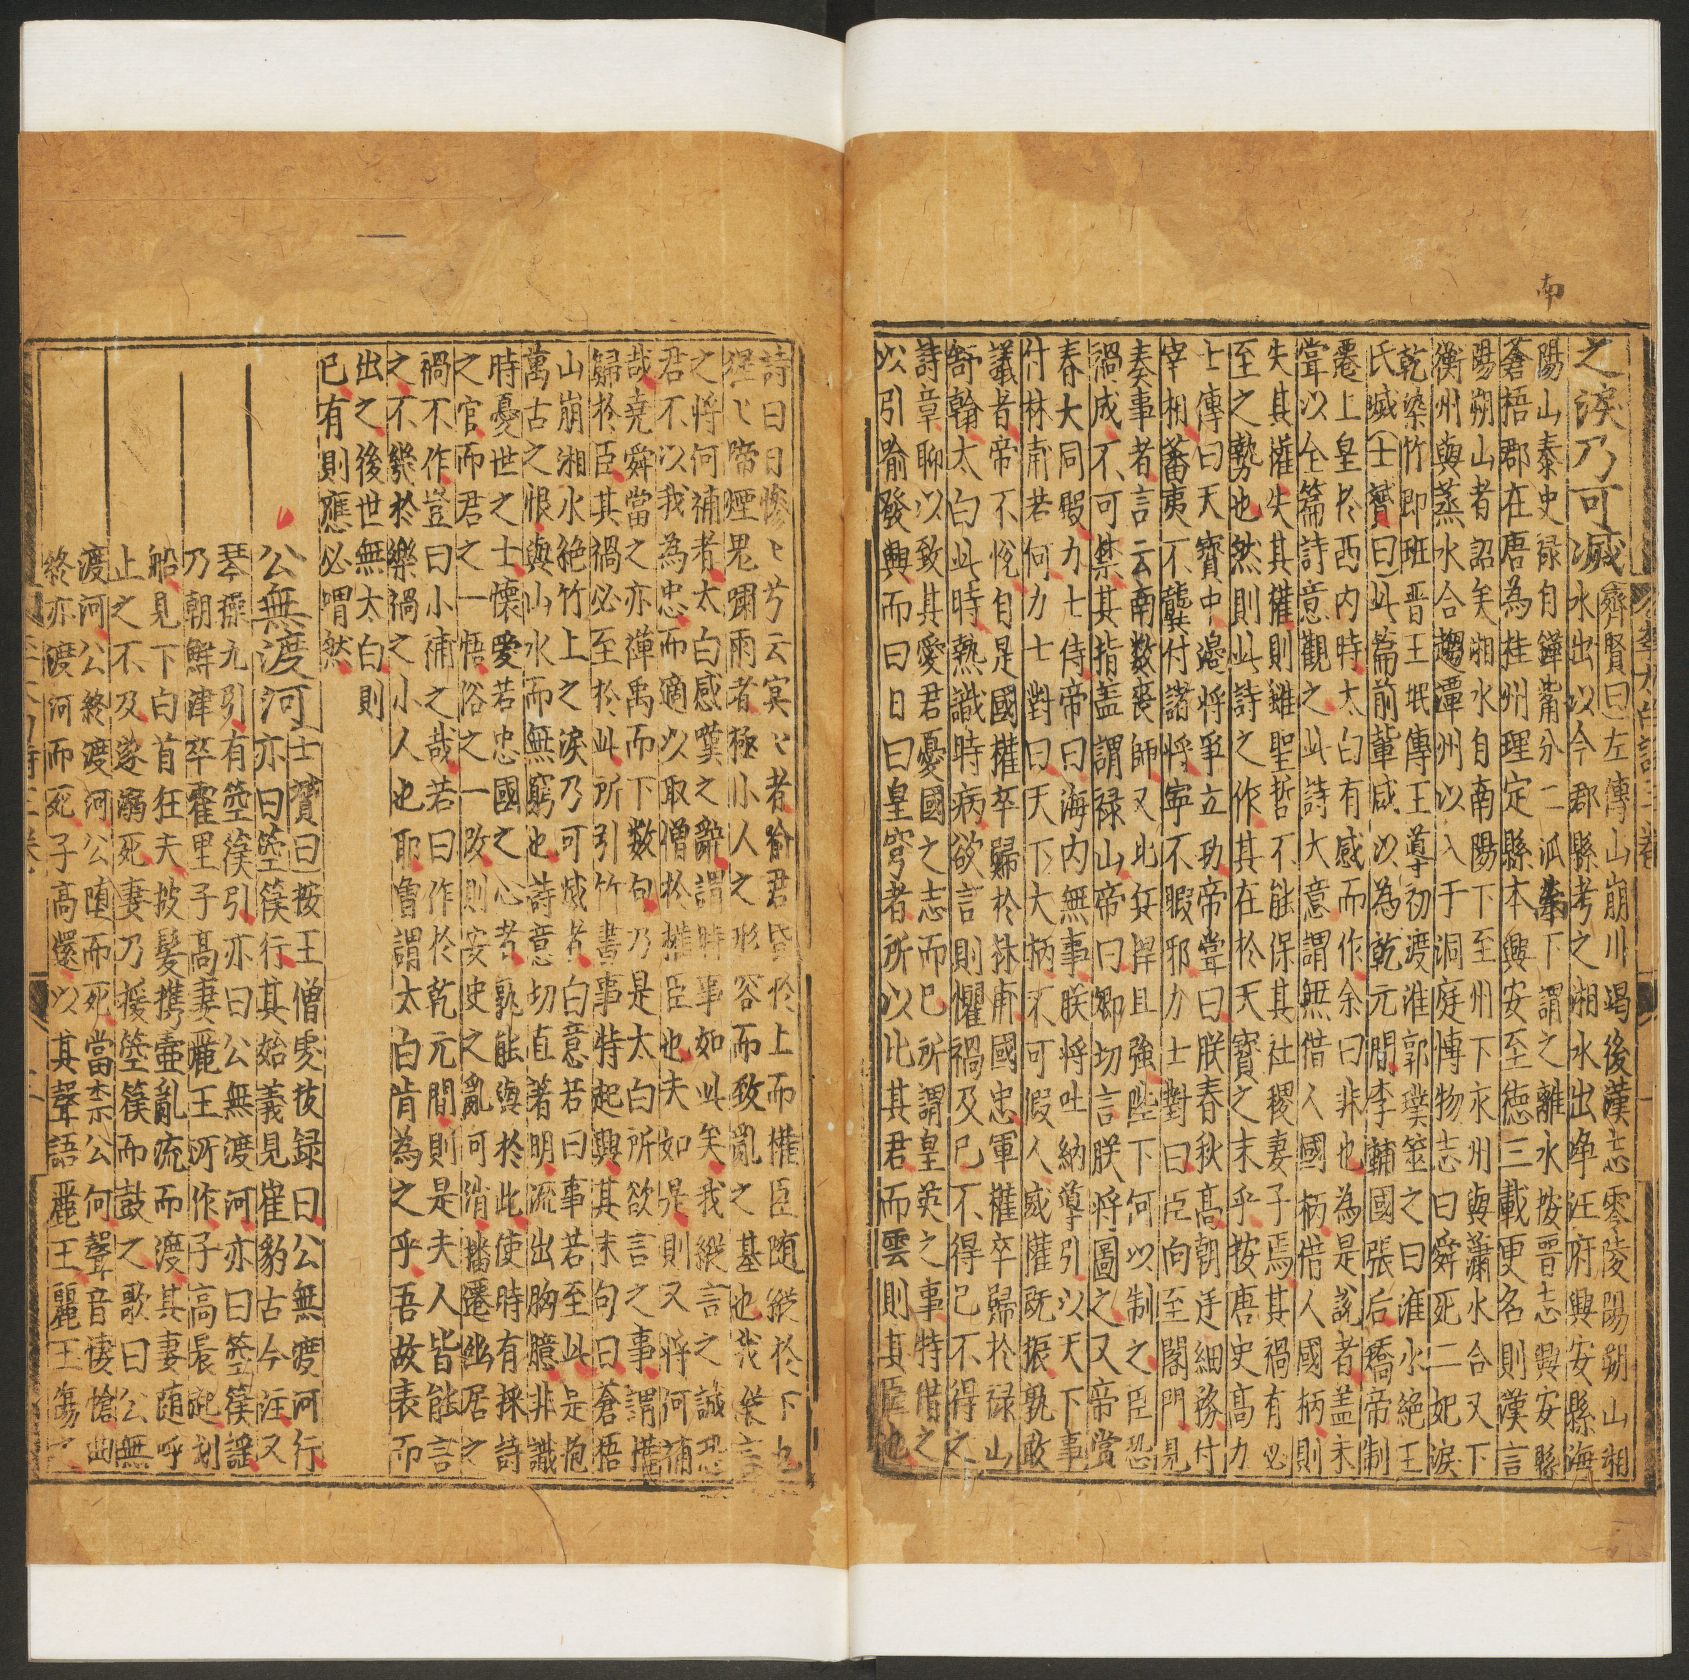 南
之淚乃可滅齊賢曰左傳山崩川竭後漢志零陵陽朔山湘
水出以今郡縣考之湘水出淨江府興安縣海
陽山秦史祿自鏵觜分二派下謂之離水按晉志興安縣
蒼梧郡在唐為桂州理定縣本興安至德三載更名則漢言
陽朔山者詔矣湘水自南陽下至州下永州與瀟水合又下
衡州與蒸水合趨潭州以入于洞庭慱物志曰舜死二妃淚
乾染竹即班晉王珉傳王導初渡淮郭璞筮之曰淮水絕王
氏滅士贇曰此篇前輩咸以為乾元間李輔國張后矯帝制
遷上皇於西内時太白有感而作余曰非也為是說者盖未
甞以全篇詩意觀之此詩大意謂無借人國柄借人國柄則
失其權失其權則雖聖哲不能保其社稷妻子焉其禍有必
至之勢也然則此詩之作其在於天寶之末乎按唐史高力
士傳曰天寶中邊將爭立功帝甞曰朕春秋高朝廷細務付
宰相蕃夷不龔付諸將寧不暇邪力士對曰臣向至閤門見
奏事者言云南數喪師又北兵悍且強陛下何以制之臣恐
禍成不可禁其指盖謂祿山帝曰卿切言朕將圖之又帝賞
春大同殿力士侍帝曰海内無事朕將吐納導引以天下事
付林甫若何力士對曰天下大柄不可假人威權既振孰敢
議者帝不悅自是國權卒歸於林甫國忠軍權卒歸於祿山
舒翰太白此時熟識時病欲言則懼禍及已不得已不得之
詩章聊以致其愛君憂國之志而已所謂皇英之事特借之
以引喻發興而曰日曰皇穹者所以比其君而雲則其臣也
詩曰日慘〻兮云冥〻者喻君昏於上而權臣隨縱於下也
猩〻啼煙鬼嘯雨者極小人之形容而致亂之基也我縱言
之將何補者太白感嘆之辭謂時事如此矣我縱言之誠恐
君不以我為忠而適以取憎於權臣也夫如是則又將何補
哉堯舜當之亦禪禹而下数句乃是太白所欲言之事謂權
歸於臣其禍必至於此所引竹書事特起興其末句曰蒼梧
山崩湘水絶竹上之淚乃可滅者白意若曰事若至此是抱
萬古之恨與山水而無窮也詩意切直著明流出胸臆非識
時憂世之士懷愛若忠國之心者孰能與於此使時有採詩
之官而君之一悟俗之一改則安史之亂何消播遷幽居之
禍不作豈曰小補之哉若曰作於乾元間則是夫人皆能言
之不幾於樂禍之小人也耶曾謂太白肯為之乎吾故表而
出之後世無太白則
已有則應必喟然
公無渡河士贇曰按王僧虔技録曰公無渡河行
亦曰箜篌行其始義見崔豹古今注又
琴操九引有箜篌引亦曰公無渡河亦曰箜篌謡
乃朝鮮津卒霍里子高妻麗王所作子高晨起刺
船見下白首狂夫披髮攜壷亂流而渡其妻隨呼
止之不及遂溺死妻乃援箜篌而鼓之歌曰公無
渡河公終渡河公堕而死當柰公何聲音悽愴曲
終亦渡河而死子高還以其聲語麗王麗王傷之